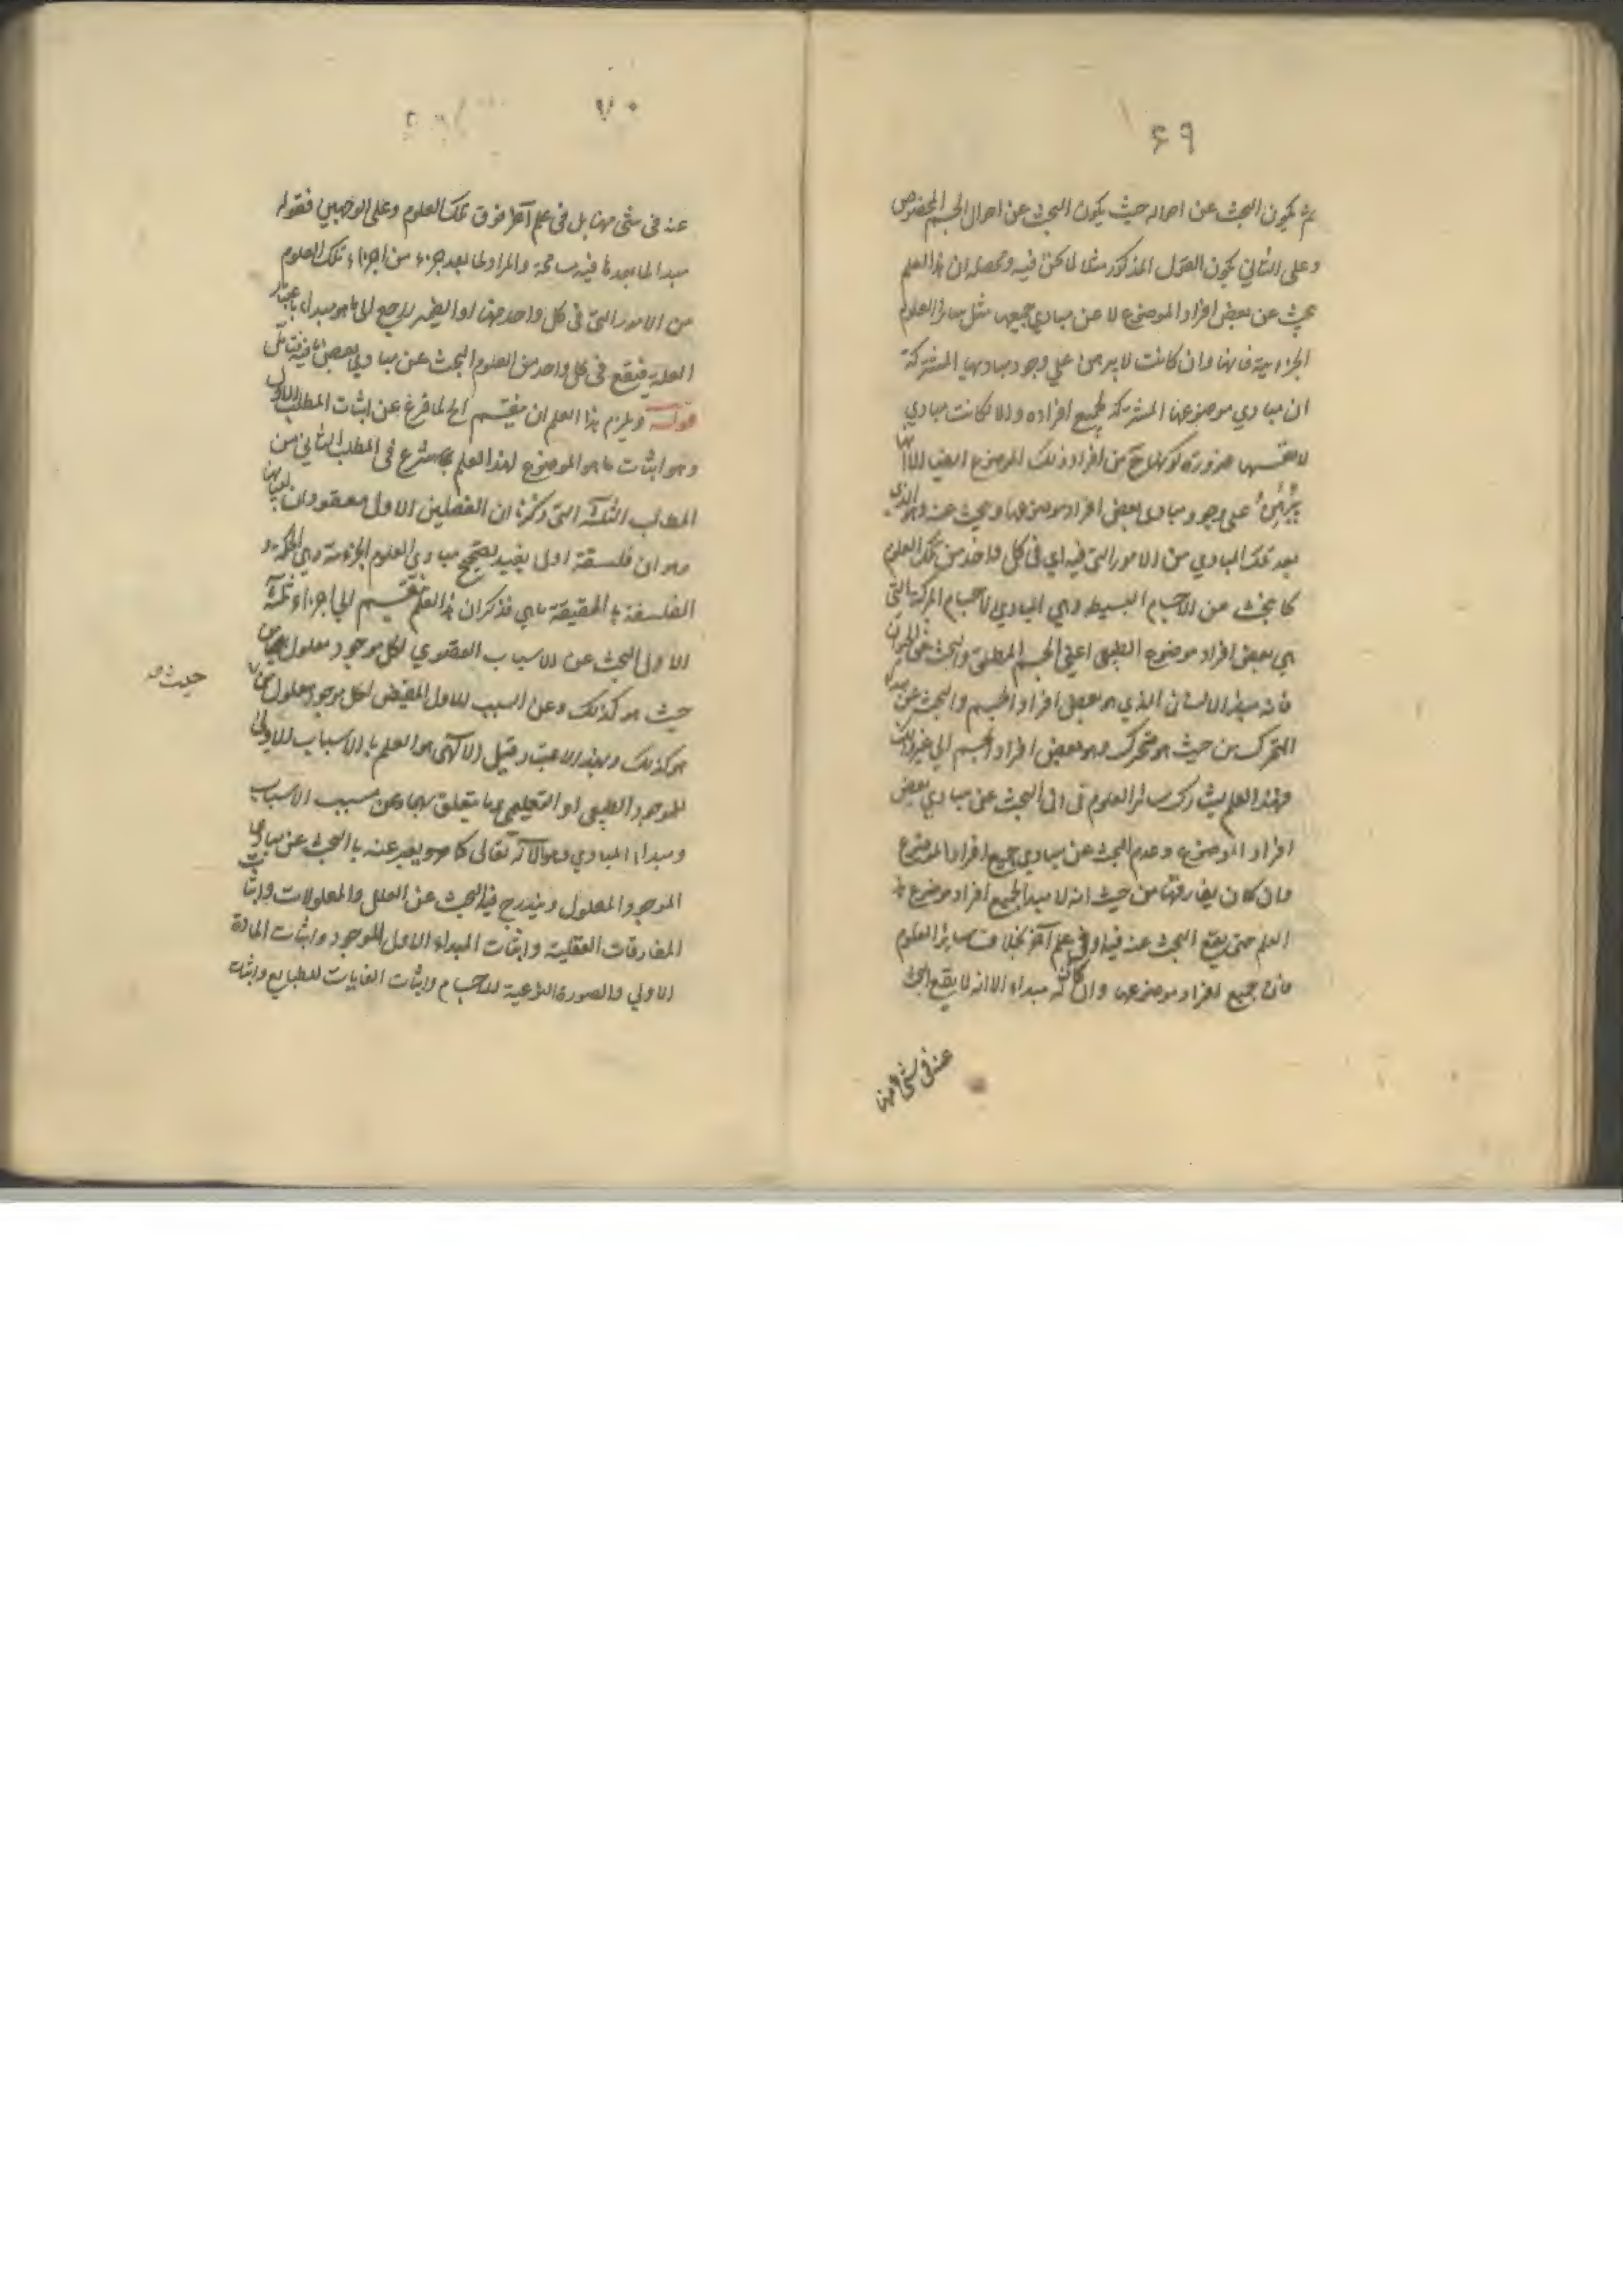 ٦٩
ثم يكون البحث عن احواله حيث يكون البحث عن احوال الجسم المخصوص
وعلى الثاني يكون القول المذكور مثلا لما نحن فيه ومحصله ان هذا العلم
يبحث عن بعض افراد الموضوع لا عن مبادي جميعها مثل سائر العلوم
الجزئية فانها وان كانت لا يبرهن على وجود مباديها المشتركة
ان مبادي موضوعها المشتركة لجميع افراده والا لكانت مبادي
لانفسها ضرورة كونها ح من افراد ذلك الموضوع ايضا الا انها
يبرهن على وجود مبادي بعض افراد موضوعها ويبحث عنه وهو الذي
بعد تلك المبادي من الامور التي فيه اي في كل واحد من تلك العلوم
كما يبحث عن الاجسام البسيطة وهي المبادي لاجسام المركبة التي
هي بعض افراد موضوع الطبيعي اعني الجسم المطلق والبحث عن
فانه مبدأ الانسان الذي هو بعض افراد الجسم والبحث عن مبدء
المتحرك من حيث هو متحرك وهو بعض افراد الجسم الي غير ذلك
فهذا العلم يشارك سائر العلوم في البحث عن مبادي بعض
افراد الموضوع وعدم البحث عن مبادي جميع افراد الموضوع
وان كان يفارقها من حيث انه لا مبدأ لجميع افراد موضوع هذا
العلم حتى يقع البحث عنه فيه او في علم آخر بخلاف سائر العلوم
فان جميع افراد موضوعها وان كان له مبداء الا انه لا يقع البحث
عنه في شئ منها
٧٠
عنه في شئ منها بل في علم آخر فوق تلك العلوم وعلى الوجهين فقوله
مبدا لما بعده فيه مسامحة والمراد لما بعد جزء من اجزاء تلك العلوم
من الامور التي في كل واحد منها او الضمير راجع الى ما هو مبداء باعتبار
العلة فيقع في كل واحد من العلوم البحث عن مبادي بعض ما فيه فتامل
قوله ويلزم هذا العلم ان ينقسم الخ لما فرغ عن اثبات المطلب الاول
وهو اثبات ما هو الموضوع لهذا العلم شرع في المطلب الثاني من
المطالب الثلثة التي ذكرنا ان الفصلين الاول معقودان لبيانها
وهو ان فلسفة اولى يفيد تصحيح مبادي العلوم الجزئية وهي الحكمة و
الفلسفة بالحقيقة ما هي فذكر ان هذا العلم ينقسم الي اجزاء ثلثة
الاولى البحث عن الاسباب القصوي لكل موجود معلول من
حيث هو كذلك وعن السبب الاول المفيض لكل موجود معلول
هو كذلك وبهذا الاعتبار قيل الالهي هو العلم بالاسباب الاولى
للموجود الطبيعي او التعليمي وما يتعلق بهما وعن مسبب الاسباب
ومبداء المبادي وهو الاله تعالى كما مر ويعبر عنه بالبحث عن مبادي
الموجود المعلول ويندرج فيه البحث عن العلل والمعلولات واثبات
المفارقات العقلية واثبات المبداء الاول للموجود واثبات المادة
الاولي والصورة النوعية للاجسام واثبات الغايات للطبايع واثبات
حيث هو